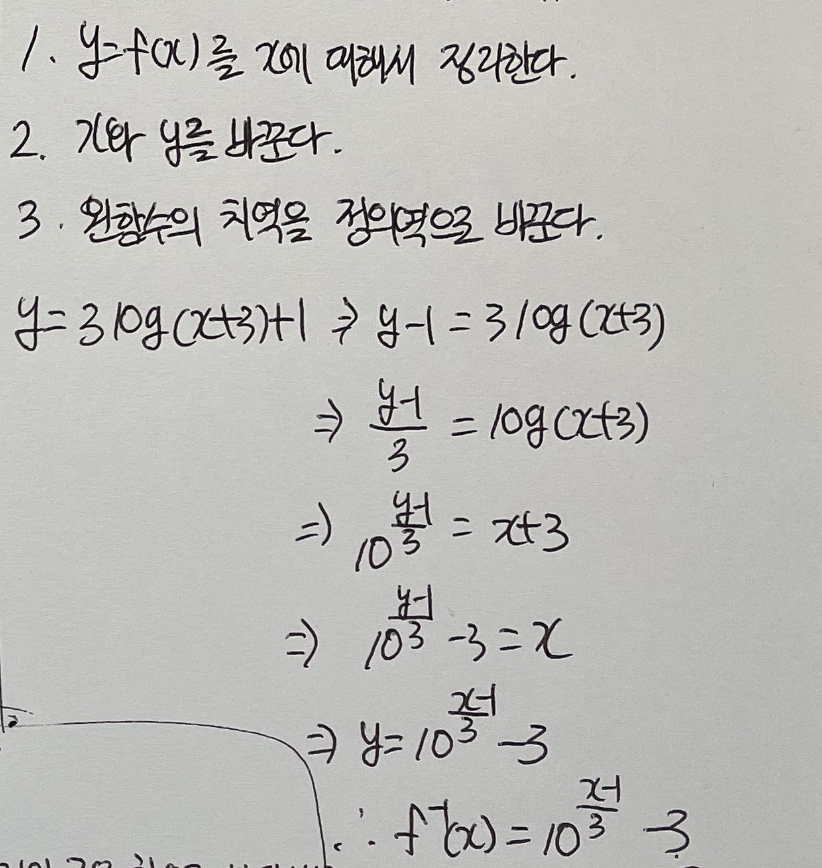 1. y=f(x)를 x에 대해서 정리한다.
2. x와 y를 바꾼다.
3. 원함수의 치역을 정의역으로 바꾼다.
y=3log(x+3)+1 ⇒ y-1=3log(x+3)
⇒ \frac{y-1}{3} = log(x+3)
⇒ 10^{\frac{y-1}{3}} = x+3
⇒ 10^{\frac{y-1}{3}} -3 = x
⇒ y=10^{\frac{x-1}{3}} -3
∴ f^{-1}(x)=10^{\frac{x-1}{3}} -3